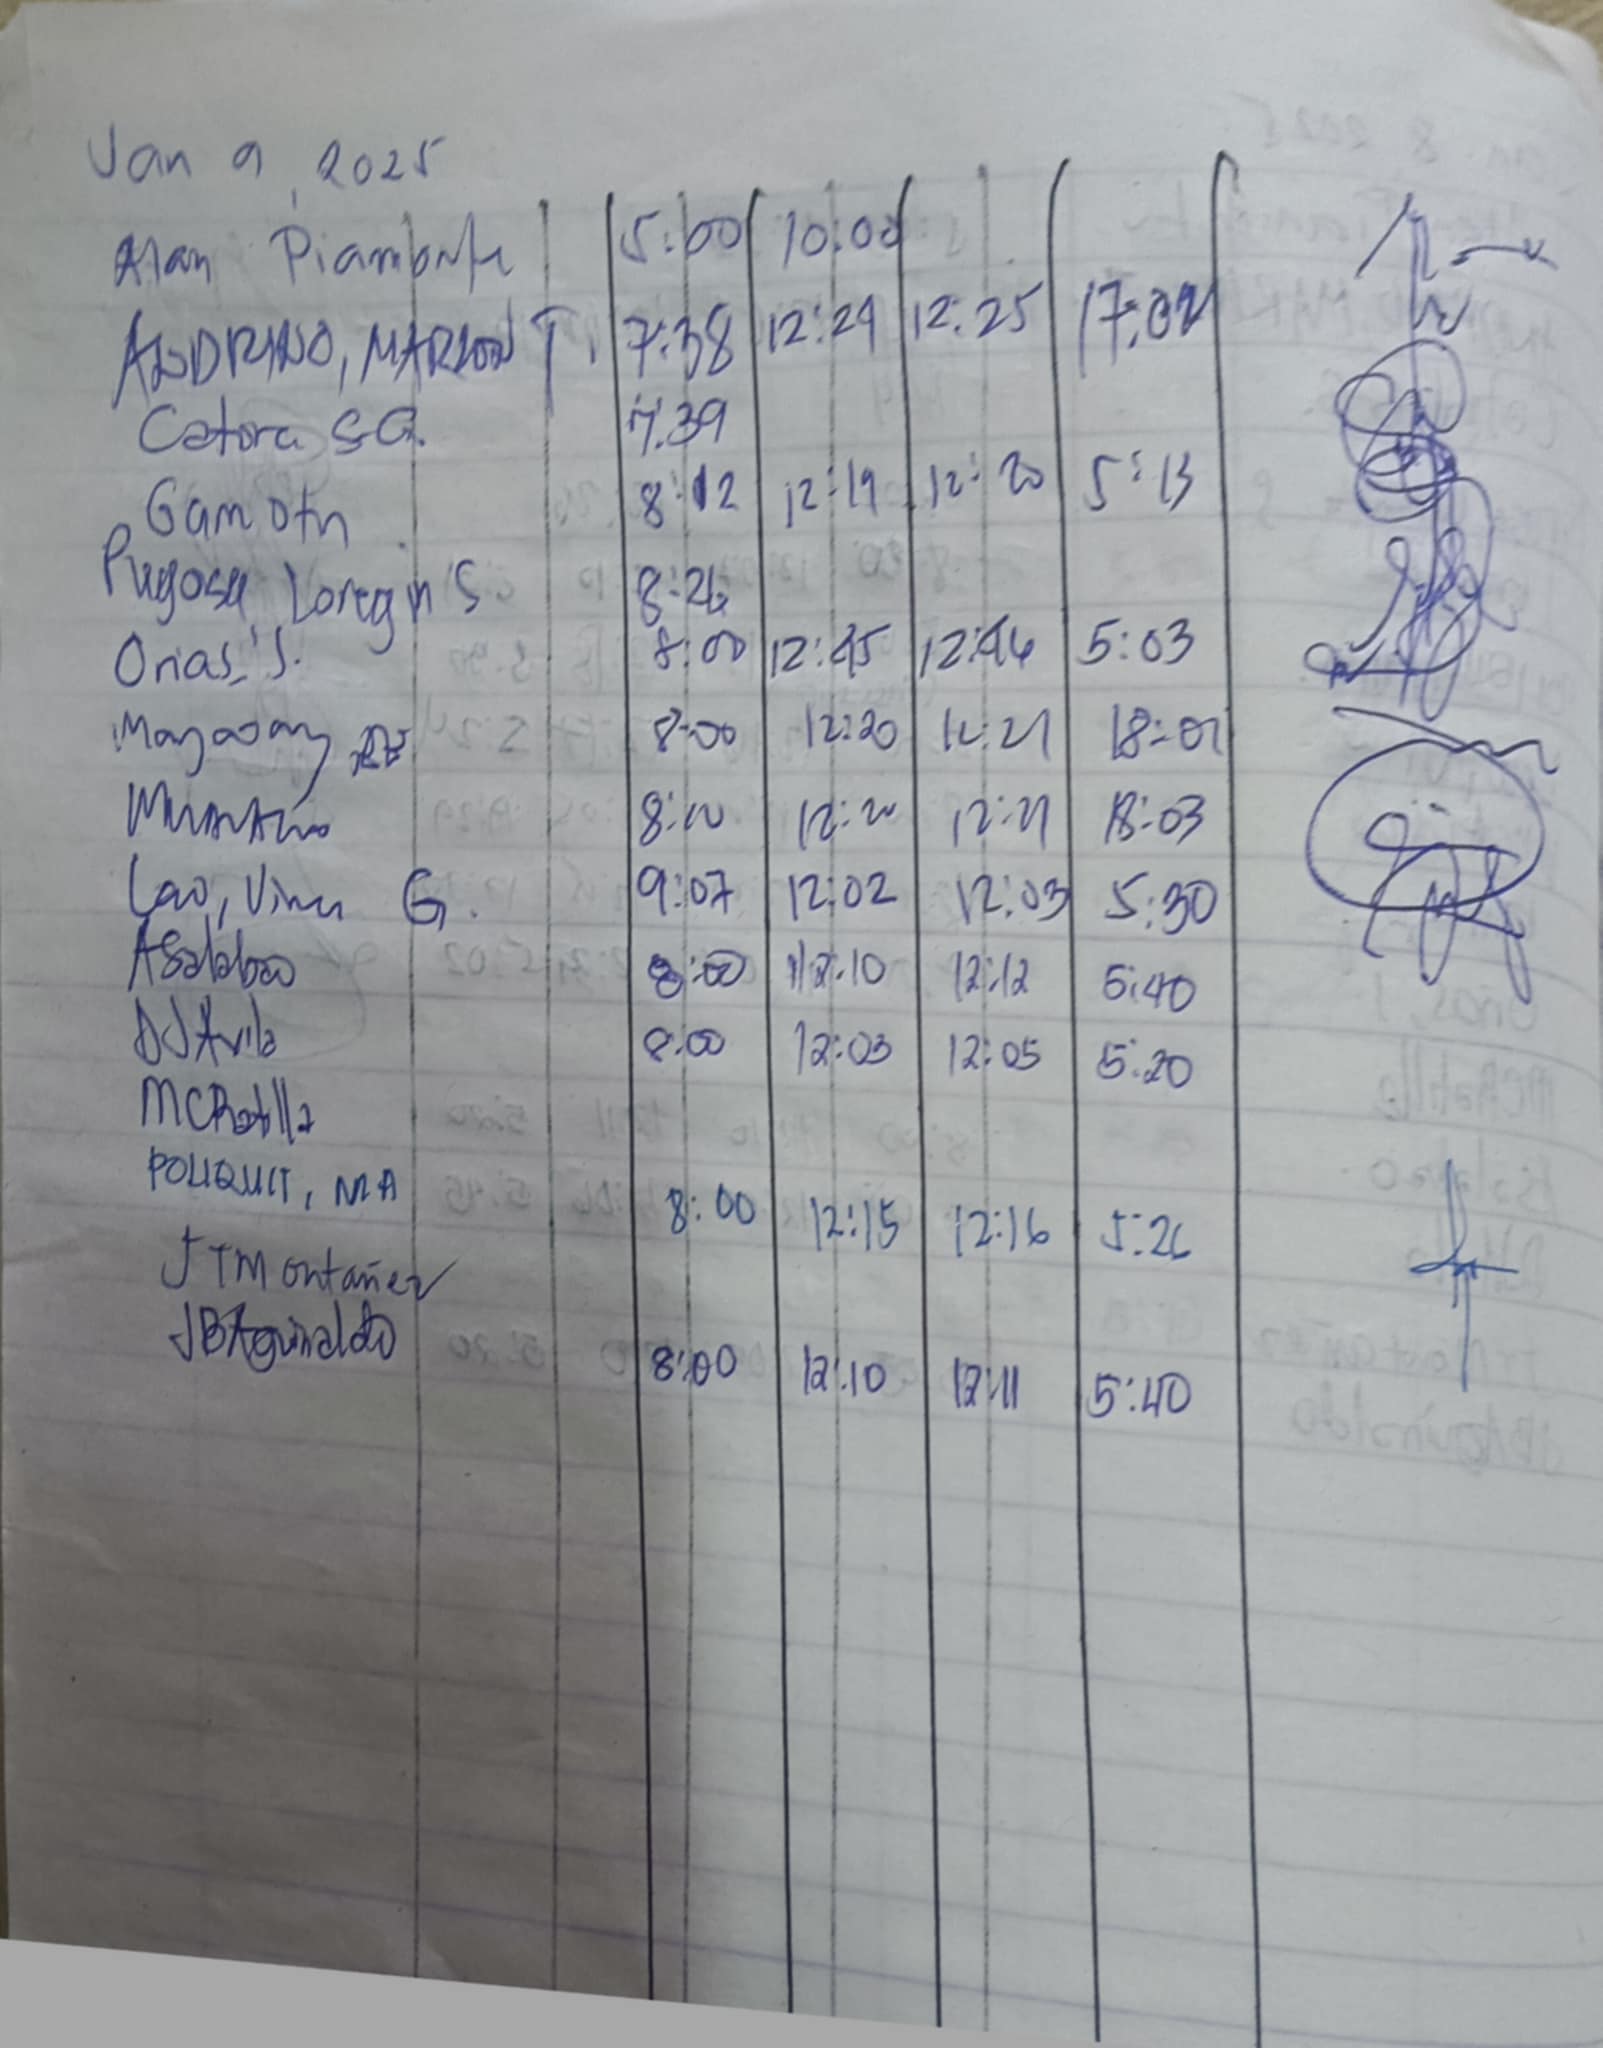 Jan 9, 2025
Alan Piamonte 5:00 10:00
ANDRINO, MARLON T. 7:38 12:24 12:25 17:02
Catora S.G. 7:39
Gamoth 8:12 12:19 12:20 5:13
Pugosa, Loregin S 8:26
Orias, J. 8:00 12:45 12:46 5:03
8:00 12:20 12:21 18:01
8:00 12:20 12:21 18:03
Lao, G. 9:07 12:02 12:03 5:30
ASalabao 8:00 12:10 12:12 5:40
DJAvila 8:00 12:03 12:05 5:20
MCRatilla
POLIQUIT, MA 8:00 12:15 12:16 5:26
JTMontañez
JBAguinaldo 8:00 12:10 12:11 5:40